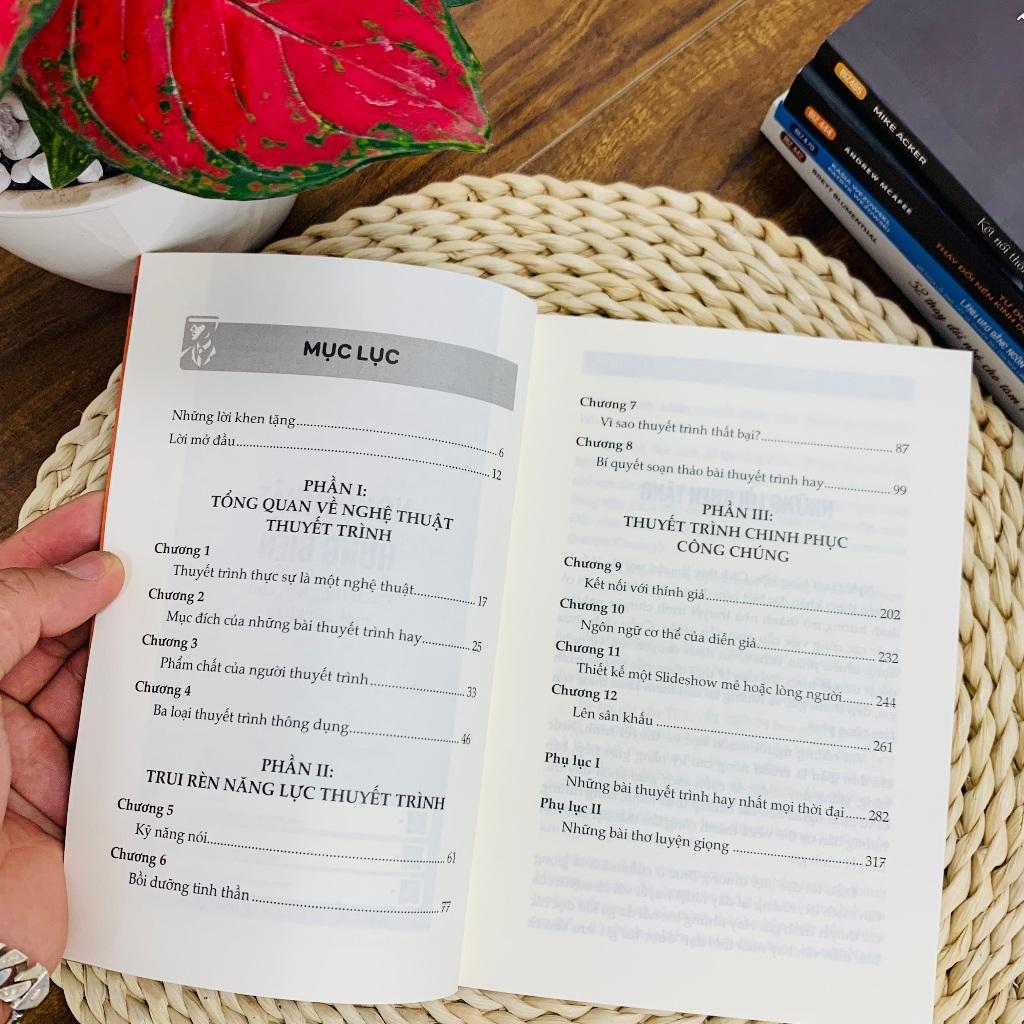 MỤC LỤC
Những lời khen tặng........................6
Lời mở đầu........................12
PHẦN I:
TỔNG QUAN VỀ NGHỆ THUẬT
THUYẾT TRÌNH
Chương 1
Thuyết trình thực sự là một nghệ thuật............17
Chương 2
Mục đích của những bài thuyết trình hay............25
Chương 3
Phẩm chất của người thuyết trình............33
Chương 4
Ba loại thuyết trình thông dụng............46
PHẦN II:
TRUI RÈN NĂNG LỰC THUYẾT TRÌNH
Chương 5
Kỹ năng nói............61
Chương 6
Bồi dưỡng tinh thần............77
Chương 7
Vì sao thuyết trình thất bại?............87
Chương 8
Bí quyết soạn thảo bài thuyết trình hay............99
PHẦN III:
THUYẾT TRÌNH CHINH PHỤC
CÔNG CHÚNG
Chương 9
Kết nối với thính giả............202
Chương 10
Ngôn ngữ cơ thể của diễn giả............232
Chương 11
Thiết kế một Slideshow mê hoặc lòng người........244
Chương 12
Lên sân khấu............261
Phụ lục I
Những bài thuyết trình hay nhất mọi thời đại......282
Phụ lục II
Những bài thơ luyện giọng............317
MIKE ACKER
Kết nối
ANDREW MCAFEE
THAY ĐỔI NỀN KINH
BRETT BLUMENTHAL
52 thay đổi nhỏ cho tâm